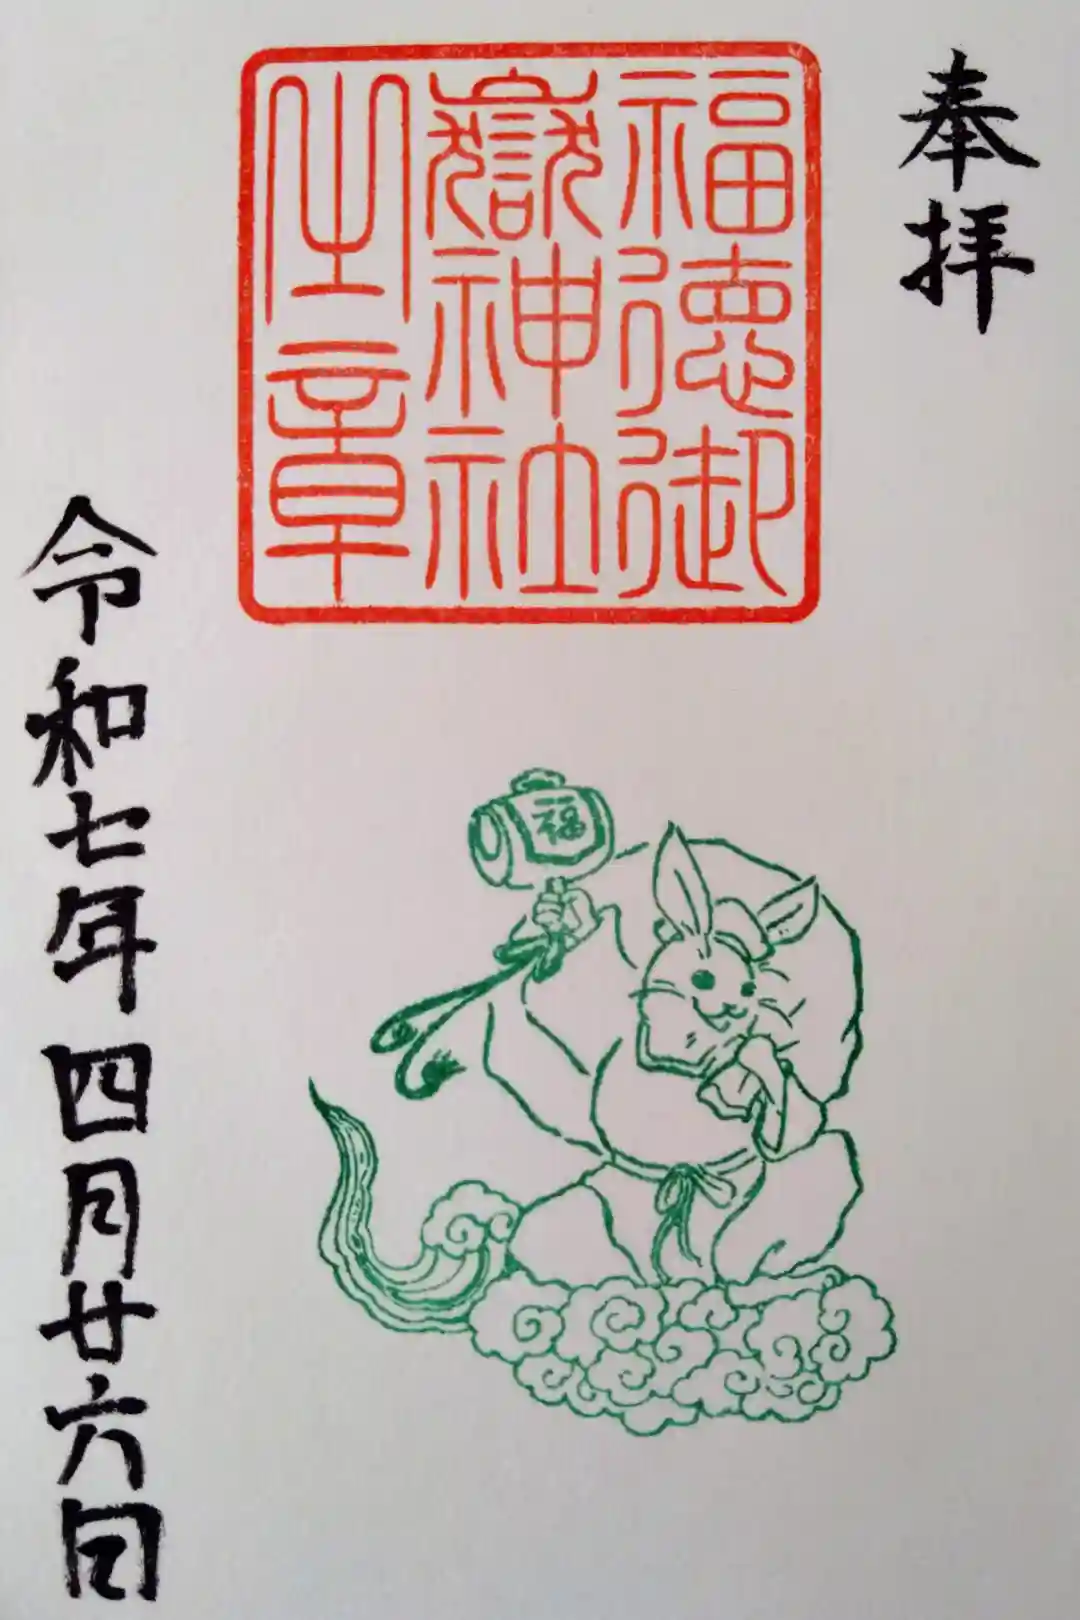 奉拝
福徳御
嶽神社
之章
福
令和七年四月廿六日